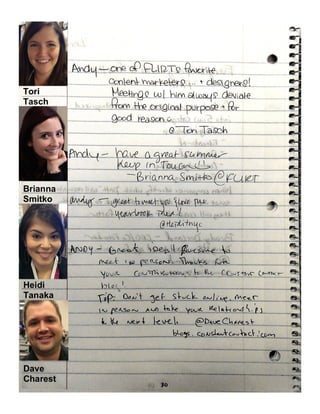 Tori
Tasch
Andy — one of FLIRT's favorite
content marketers + designers!
Meetings w/ him always deviate
from the original purpose + for
good reason.
@ Tori Tasch
Andy - have a great summer
keep in Touch!
- Brianna Smitko @ FLIRT
Brianna
Smitko
Andy - great to meet you! love the
yearbook idea!
@Heiditnyc
Heidi
Tanaka
ANDY - Great idea! Awesome to
meet in person. Thanks for
your contributions to the Constant Contact
blog!
Tip: Don't get stuck online. Meet
in person and take your relationships
to the next level. @DaveCharest
blogs.constantcontact.com
Dave
Charest
30